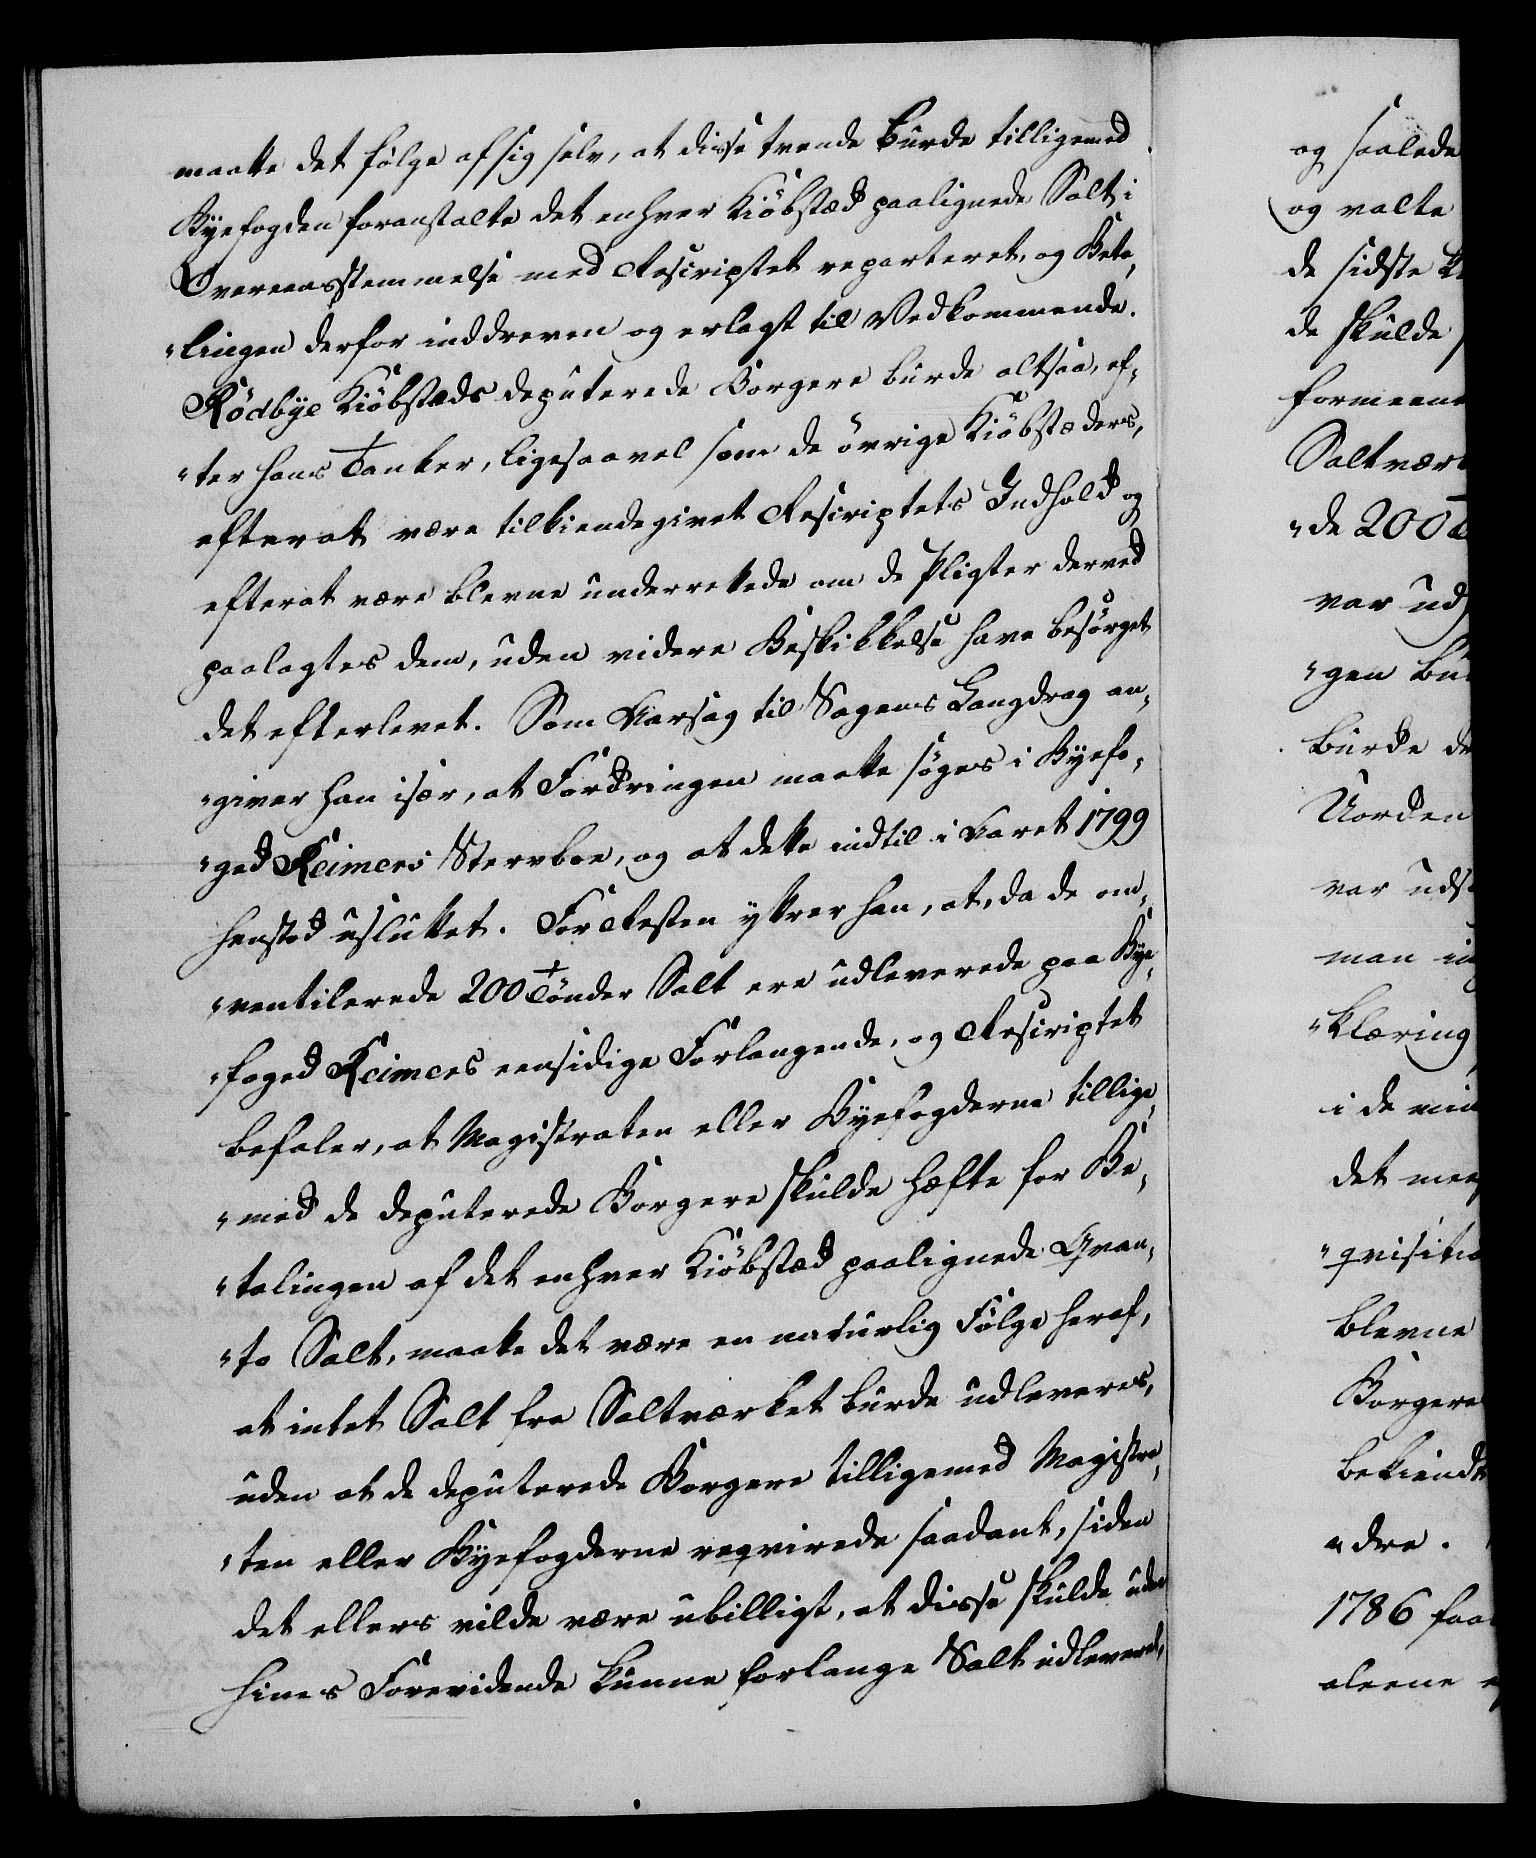 maatte det følge af sig selv, at disse trende burde tilligemed
Byefogden foranstalte det enhver Kiöbstæd paalignede Salt i
Overeensstemmelse med Rescriptet reparteret, og Beta„
„lingen derfor inddreven og erlagt til Vedkommende.
Rödbye Kiöbstæds deputerede Borgere burde altsaa, ef„
„ter hans Tanker, ligesaavel som de övrige Kiöbstæders,
efterat være tilkiendegivet Rescriptets Indhold og
efterat være blevne underrettede om de Pligter derved
paalagtes dem, uden videre Beskikkelse have besörget
det efterlevet. Som Aarsag til Sagens Langdrag an„
„giver han især, at Fordringen maatte söges i Byefo„
„ged Reimers Sterrboe, og at dette indtil i Aaret 1799
henstod usluttet. For Resten yttrer han, at, da de om„
„ventilerede 200 Tönder Salt ere udleverede paa Bye„
„foged Reimers eensidige Forlangende, og Rescriptet
befaler, at Magistraten eller Byefogderne tillige„
„med de deputerede Borgere skulde hæfte for Be„
„talingen af det enhver Kiöbstæd paalignede Qvan„
„to Salt, maatte det være en naturlig Fölge heraf,
at intet Salt fra Saltværket burde udleveres,
uden at de deputerede Borgere tilligemed Magistra„
„ten eller Byefogderne reqvirede saadant, siden
det ellers vilde være ubilligt, at disse skulde uden
hines Forevidende kunne forlange Salt udleveret,
og saalede
og valte
de sidste
de skulde
formeene
Saltvær
„de 200
var ud
„gen bu
burde
Uorden
var uds
man in
„klæring
i de min
det mee
„qvisitio
blevne
Borgere
bekiendt
„dre.
1786 faa
aleene